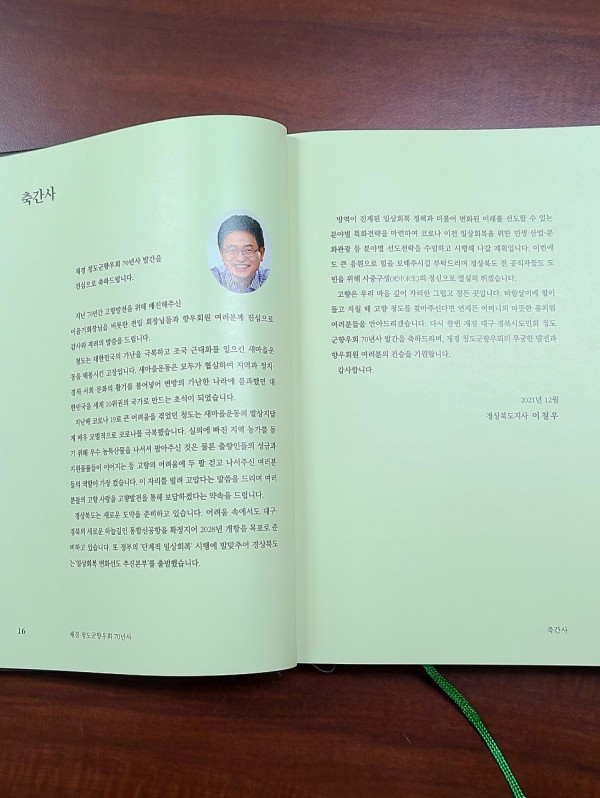 축간사
재경 청도군향우회 70년사 발간을
진심으로 축하드립니다.
지난 70년간 고향발전을 위해 매진해주신
이을기회장님을 비롯한 전임 회장님들과 향우회원 여러분께 진심으로
감사와 격려의 말씀을 드립니다.
청도는 대한민국의 가난을 극복하고 조국 근대화를 일으킨 새마을운
동을 태동시킨 고장입니다. 새마을운동은 모두가 협심하여 지역과 정치·
경제·사회·문화의 활기를 불어넣어 변방의 가난한 나라에 불과했던 대
한민국을 세계 10위권의 국가로 만드는 초석이 되었습니다.
지난해 코로나 19로 큰 어려움을 겪었던 청도는 새마을운동의 발상지답
게 매우 모범적으로 코로나를 극복했습니다. 실의에 빠진 지역 농가를 돕
기 위해 우수 농특산물을 나서서 팔아주신 것은 물론 출향인들의 성금과
지원물품들이 이어지는 등 고향의 어려움에 두 팔 걷고 나서주신 여러분
들의 역할이 가장 컸습니다. 이 자리를 빌려 고맙다는 말씀을 드리며 여러
분들의 고향 사랑을 고향발전을 통해 보답하겠다는 약속을 드립니다.
경상북도는 새로운 도약을 준비하고 있습니다. 어려움 속에서도 대구·
경북의 새로운 하늘길인 통합신공항을 확정지어 2028년 개항을 목표로 준
비하고 있습니다. 또 정부의 '단계적 일상회복' 시행에 발맞추어 경상북도
는 '일상회복 변화선도 추진본부'를 출범했습니다.
16
재경 청도군향우회 70년사
방역이 전제된 일상회복 정책과 더불어 변화된 미래를 선도할 수 있는
분야별 특화전략을 마련하여 코로나 이전 일상회복을 위한 민생·산업·문
화관광 등 분야별 선도전략을 수립하고 시행해 나갈 계획입니다. 이번에
도 큰 응원으로 힘을 보태주시길 부탁드리며 경상북도 전 공직자들도 도
민을 위해 사중구생(死中求生)의 정신으로 열심히 뛰겠습니다.
고향은 우리 마음 깊이 자리한 그립고 정든 곳입니다. 타향살이에 힘이
들고 지칠 때 고향 청도를 찾아주신다면 언제든 어머니의 따뜻한 품처럼
여러분들을 안아드리겠습니다. 다시 한번 재경 대구·경북시도민회 청도
군향우회 70년사 발간을 축하드리며, 재경 청도군향우회의 무궁한 발전과
향우회원 여러분의 건승을 기원합니다.
감사합니다.
2021년 12월
경상북도지사 이철우
축간사